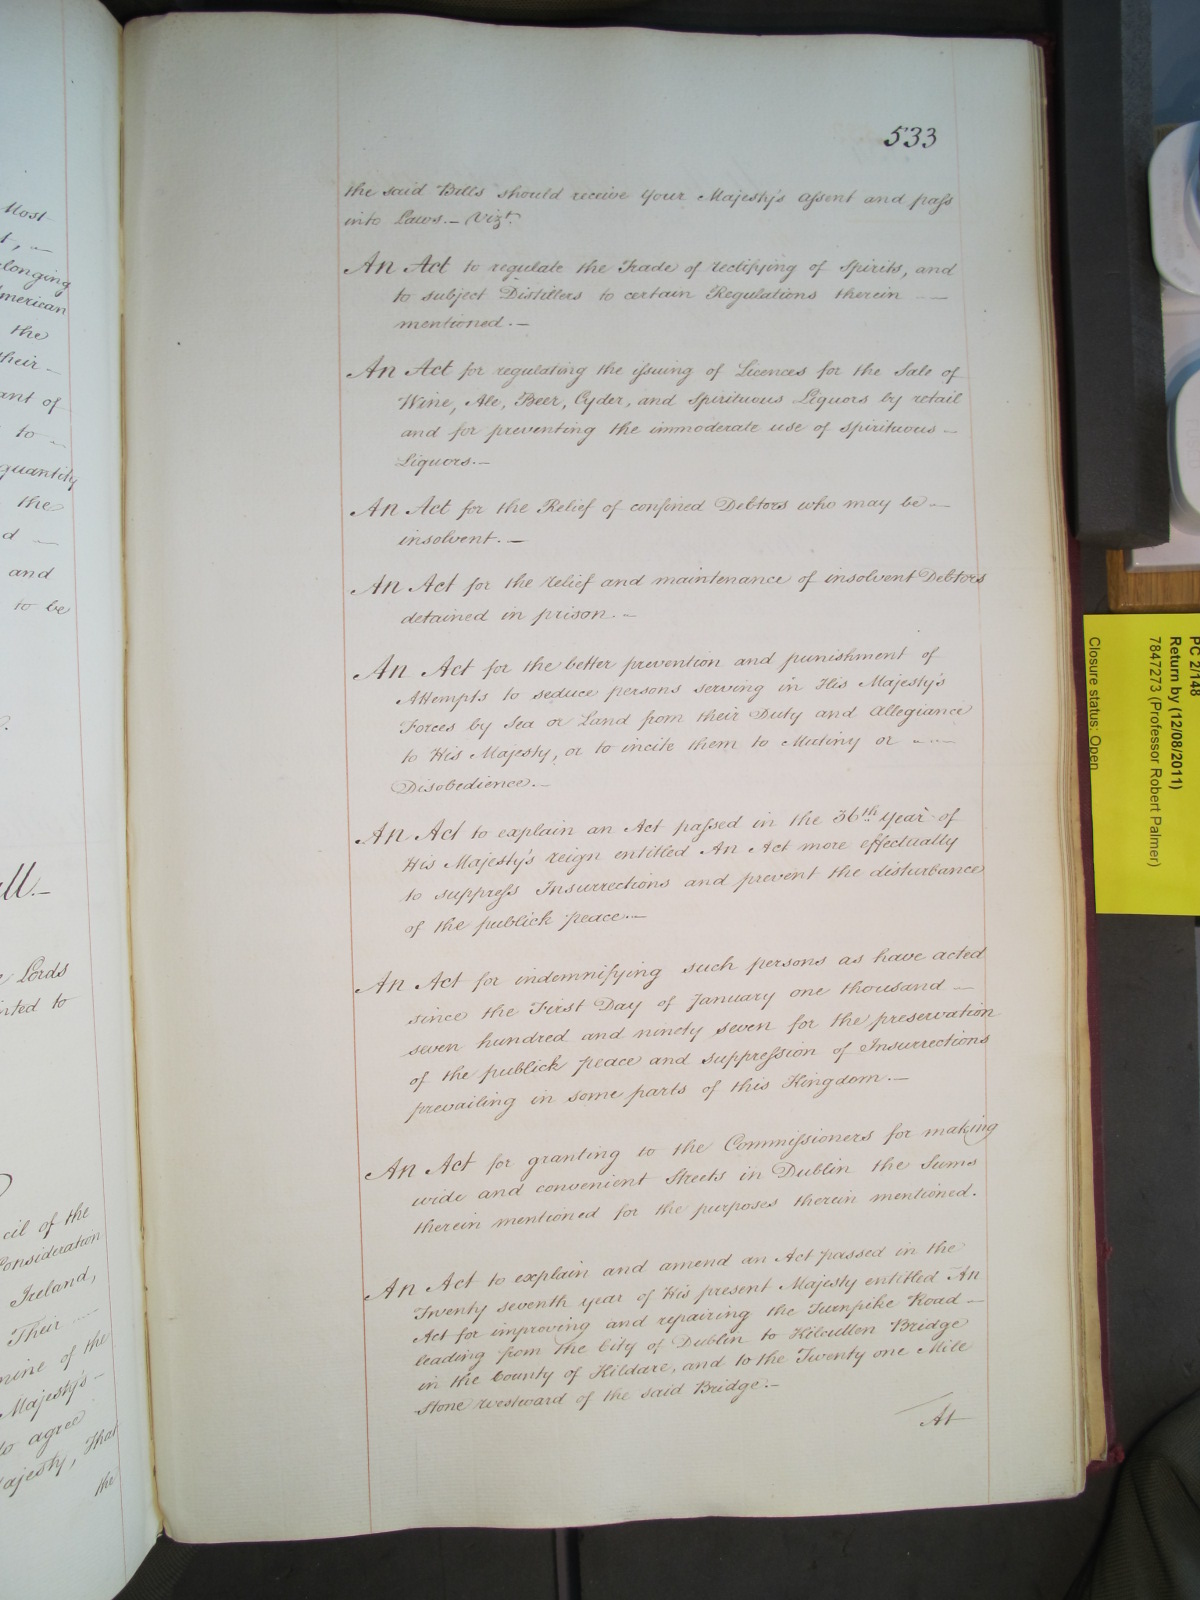 Most
longing
American
the
their –
ant of
to –
quantity
the
d –
and
to be
all. –
Lords
nted to
cil of the
Consideration
Ireland,
Their –
mine of the
Majesty's –
to agree
ajesty, That
the
533
the said Bills should receive Your Majesty's Assent and pass
into Laws. – Vizt.
An Act to regulate the Trade of rectifying of Spirits, and
to subject Distillers to certain Regulations therein – –
mentioned. –
An Act for regulating the issuing of Licences for the Sale of
Wine, Ale, Beer, Cyder, and Spirituous Liquors by retail
and for preventing the immoderate use of Spirituous –
Liquors. –
An Act for the Relief of confined Debtors who may be –
insolvent. –
An Act for the relief and maintenance of insolvent Debtors
detained in prison. –
An Act for the better prevention and punishment of
Attempts to seduce persons serving in His Majesty's
Forces by Sea or Land from their Duty and Allegiance
to His Majesty, or to incite them to Mutiny or – – –
Disobedience. –
An Act to explain an Act passed in the 36th Year of
His Majesty's reign entitled An Act more effectually
to suppress Insurrections and prevent the disturbance
of the publick peace. –
An Act for indemnifying such persons as have acted
since the First Day of January one thousand –
seven hundred and ninety seven for the preservation
of the publick peace and suppression of Insurrections
prevailing in some parts of this Kingdom. –
An Act for granting to the Commissioners for making
wide and convenient Streets in Dublin the Sums
therein mentioned for the purposes therein mentioned.
An Act to explain and amend an Act passed in the
Twenty seventh year of His present Majesty entitled An
Act for improving and repairing the Turnpike Road –
leading from the City of Dublin to Kilcullen Bridge
in the County of Kildare, and to the Twenty one Mile
Stone westward of the said Bridge. –
At
PC 2/148
Return by (12/08/2011)
7847273 (Professor Robert Palmer)
Closure status: Open